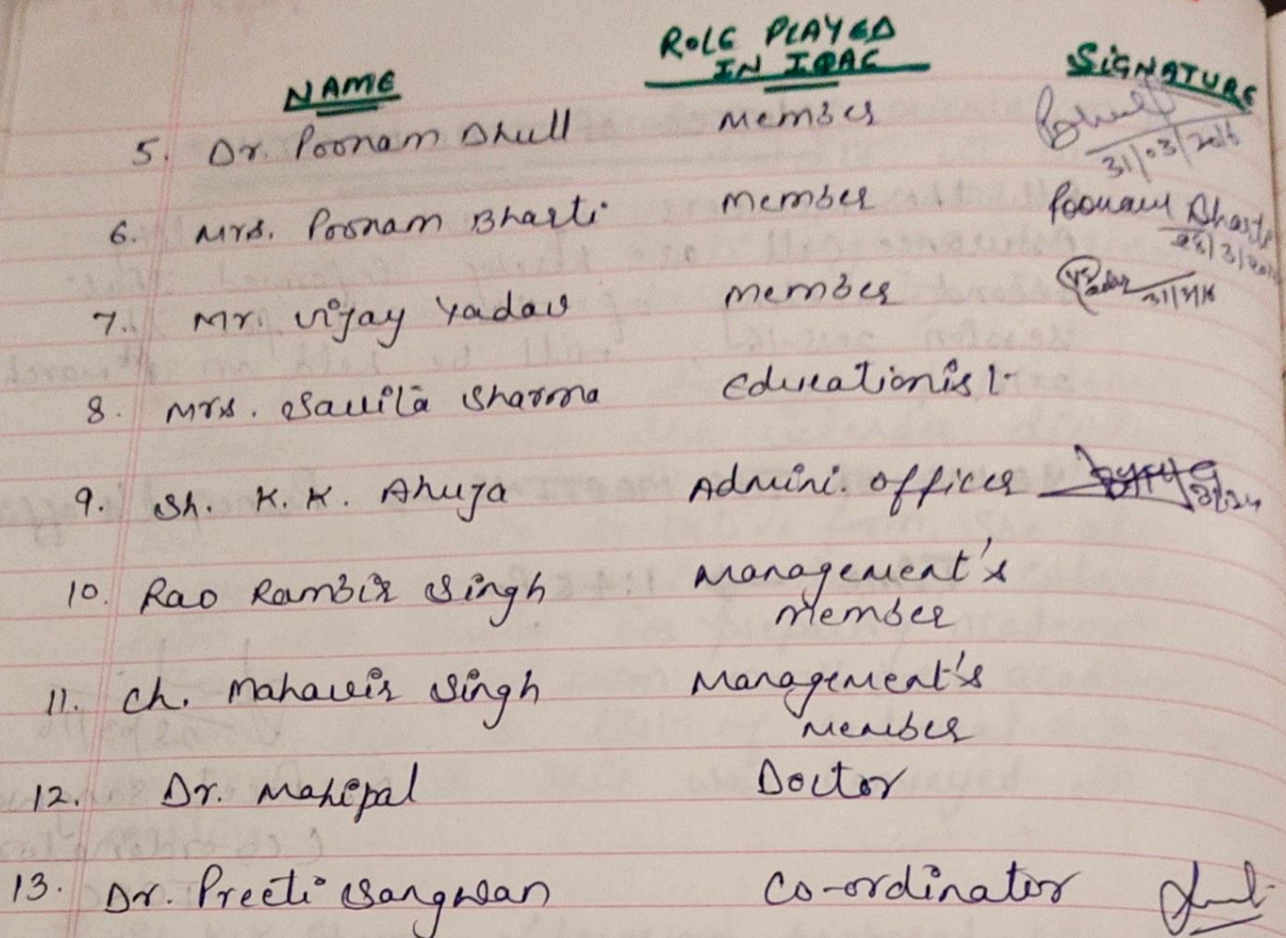 NAME ROLE PLAYED IN IQAC SIGNATURE
5. Dr. Poonam Dhull Member 31/03/2016
6. Mrs. Poonam Bharti Member Poonam Bharti
7. Mr. Vijay Yadav Member Yadav 31/3/16
8. Mrs. Savita Sharma Educationist
9. Sh. K. K. Ahuja Admini. Officer
10. Rao Rambir Singh Management's
Member
11. Ch. Mahavir Singh Management's
Member
12. Dr. Mahipal Doctor
13. Dr. Preeti Sangwan Co-ordinator